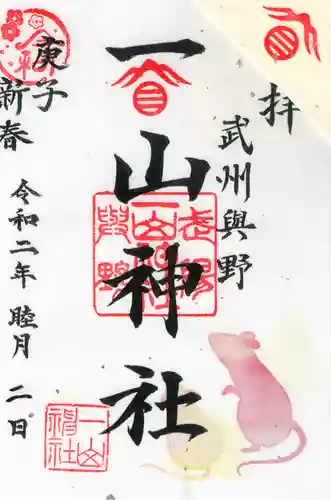 拝
武州與野
一山神社
庚子
新春
令和二年 睦月 二日
一山
神社